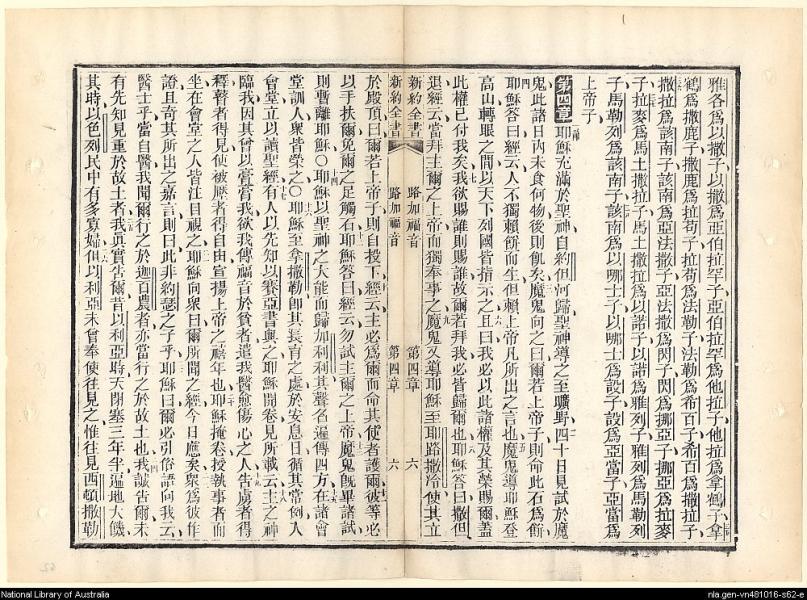 雅各爲以撒子以撒爲亞伯拉罕子亞伯拉罕爲他拉子他拉爲拿鶴子拿
鶴爲撒鹿子撒鹿爲拉苟子拉苟爲法勒子法勒爲希百子希百爲撒拉子
撒拉爲該南子該南爲亞法撒子亞法撒爲閃子閃爲挪亞子挪亞爲拉麥
子拉麥爲馬土撒拉子馬土撒拉爲以諾子以諾爲雅列子雅列爲馬勒列
子馬勒列爲該南子該南爲以哪士子以哪士爲設子設爲亞當子亞當爲
上帝子
第四章 耶穌充滿於聖神自約但河歸聖神導之至曠野四十日見試於魔
鬼此諸日内未食何物後則飢矣魔鬼向之曰爾若上帝子則命此石爲餅
耶穌答曰經云人不獨賴餅而生但賴上帝凡所出之言也魔鬼導耶穌登
高山轉眼之間以天下列國皆指示之且曰我必以此諸權及其榮賜爾蓋
此權已付我矣我欲賜誰則賜誰故爾若拜我必皆歸爾也耶穌答曰撒但
退經云當拜主爾之上帝而獨奉事之魔鬼又導耶穌至耶路撒冷使其立
新約全書 路加福音 第四章 六
新約全書 路加福音 第四章 六
於殿頂曰爾若上帝子則自投下經云主必爲爾而命其使者護爾彼等必
以手扶爾免爾之足觸石耶穌答曰經云勿試主爾之上帝魔鬼旣畢諸試
則暫離耶穌○耶穌以聖神之大能而歸加利利其聲名遍傳四方在諸會
堂訓人衆皆榮之○耶穌至拿撒勒即其長育之處於安息日循其常例入
會堂立以讀聖經有人以先知以賽亞書與之耶穌開卷見所載云主之神
臨我因其曾以膏膏我欲我傳福音於貧者遣我醫愈傷心之人告虜者得
釋瞽者得見使被壓者得自由宣揚上帝之禧年也耶穌掩卷授執事者而
坐在會堂之人皆注目視之耶穌向衆曰爾所聞之經今日應矣衆爲彼作
證且奇其所出之嘉言則曰此非約瑟之子乎耶穌曰爾必引俗語向我云
醫士乎當自醫我聞爾行之於迦百農者亦當行之於故土也我誠告爾未
有先知見重於故土者我眞實告爾昔以利亞時天閉塞三年半遍地大饑
其時以色列民中有多寡婦但以利亞未曾奉使往見之惟往見西頓撒勒
National Library of Australia
nla.gen-vn481016-s62-e